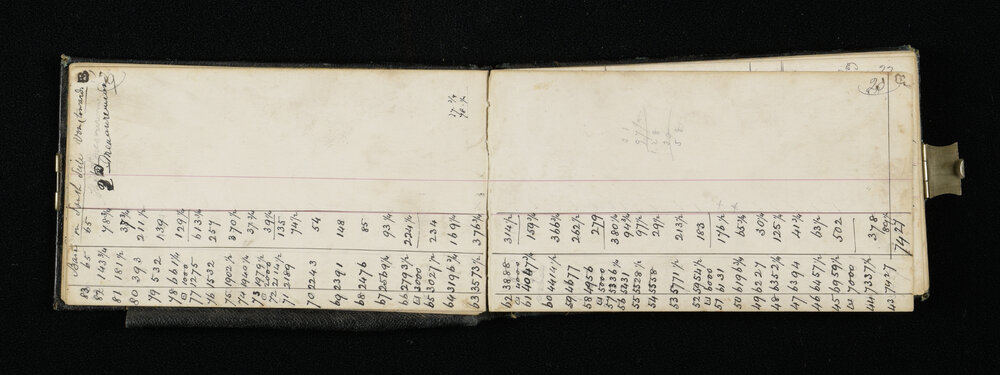 on South Side
B
2nd Measurement
83 65 65
82 143¾ 78¾
81 181½ 37¾
80 393 211½
79 532 139
78 661½ 129½
1000
77 1275 613¾
76 1532 257
75 1902½ 370½
74 1940¼ 37¾
73 1979¾ 39½
2000
72 2114½ 135
71 2189 74½
70 2243 54
69 2391 148
68 2476 85
67 2569¼ 93¼
66 2793½ 224¼
3000
65 3027½ 234
64 3196¾ 169¼
63 3573½ 376¾
62 3888 314½
4000
61 4047¾ 159¾
60 4414 366¼
59 4677 262½
58 4956 279
5000
57 5336¾ 380½
56 5431 94¾
55 5528½ 97½
54 5558 29½
53 5771½ 213½
52 5954½ 183
6000
51 6131 176½
50 6196¾ 65¾
49 6227 30¼
48 6352¼ 125¼
47 6394 41¾
46 6457½ 63½
45 6959½ 502
7000
44 7337½ 378
43 7427 89½
7427